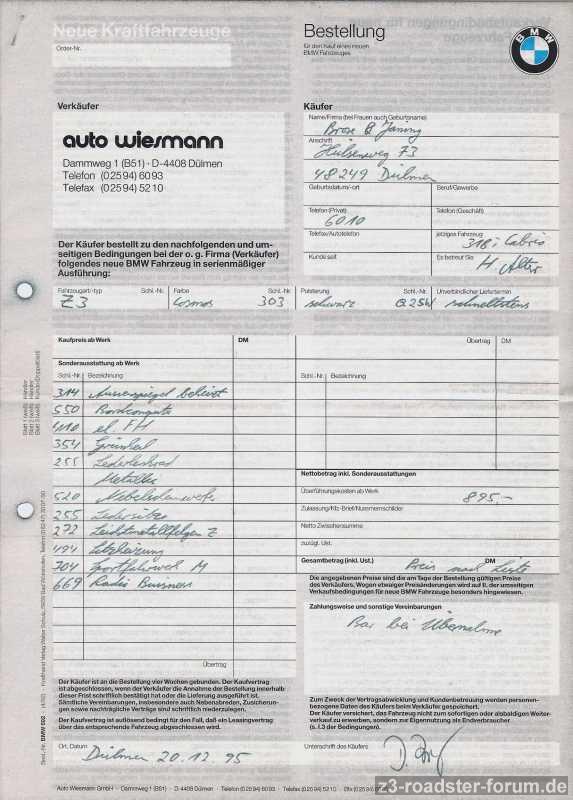 Neue Kraftfahrzeuge
Order-Nr.
Bestellung
für den Kauf eines neuen
BMW Fahrzeuges
BMW
Verkäufer
auto wiesmann
Dammweg 1 (B51) · D-4408 Dülmen
Telefon (0 25 94) 60 93
Telefax (0 25 94) 52 10
Käufer
Name/Firma (bei Frauen auch Geburtsname)
Anschrift
73
48249 Dülmen
Geburtsdatum/-ort
Beruf/Gewerbe
Telefon (Privat)
6010
Telefon (Geschäft)
Telefax/Autotelefon
jetziges Fahrzeug
318i Cabrio
Kunde seit
Es betreut Sie
H. Alter
Der Käufer bestellt zu den nachfolgenden und um-
seitigen Bedingungen bei der o. g. Firma (Verkäufer)
folgendes neue BMW Fahrzeug in serienmäßiger
Ausführung:
Fahrzeugart/-typ Schl.-Nr. Farbe Schl.-Nr. Polsterung Schl.-Nr. Unverbindlicher Liefertermin
Z3 Cosmos 303 schwarz schnellstens
Kaufpreis ab Werk DM
Übertrag DM
Sonderausstattung ab Werk
Schl.-Nr. Bezeichnung
Schl.-Nr. Bezeichnung
314 Aussenspiegel beheizt
550 Bordcomputer
410 el. FH
354 Grünkeil
255 Lederlenkrad
Metallic
520 Nebelscheinwerfer
255 Ledersitze
272 Leichtmetallfelgen Z
494 Sitzheizung
704 Sportfahrwerk M
669 Radio Business
Übertrag
Nettobetrag inkl. Sonderausstattungen
Überführungskosten ab Werk
895.-
Zulassung/Kfz-Brief/Nummernschilder
Netto Zwischensumme
zuzügl. Ust.
Gesamtbetrag (inkl. Ust.) DM
Preis nach Liste
Die angegebenen Preise sind die am Tage der Bestellung gültigen Preise
des Verkäufers. Wegen etwaiger Preisänderungen wird auf II. der umseitigen
Verkaufsbedingungen für neue BMW Fahrzeuge besonders hingewiesen.
Zahlungsweise und sonstige Vereinbarungen
Bar bei Übernahme
Der Käufer ist an die Bestellung vier Wochen gebunden. Der Kaufvertrag
ist abgeschlossen, wenn der Verkäufer die Annahme der Bestellung innerhalb
dieser Frist schriftlich bestätigt hat oder die Lieferung ausgeführt ist.
Sämtliche Vereinbarungen, insbesondere auch Nebenabreden, Zusicherun-
gen sowie nachträgliche Verträge sind schriftlich niederzulegen.
Der Kaufvertrag ist auflösend bedingt für den Fall, daß ein Leasingvertrag
über das entsprechende Fahrzeug abgeschlossen wird.
Zum Zweck der Vertragsabwicklung und Kundenbetreuung werden personen-
bezogene Daten des Käufers beim Verkäufer gespeichert.
Der Käufer versichert, das Fahrzeug nicht zum sofortigen oder alsbaldigen Weiter-
verkauf zu erwerben, sondern zur Eigennutzung als Endverbraucher
(s. I.3 der Bedingungen).
Ort, Datum
Dülmen 20.12.95
Unterschrift des Käufers
Auto Wiesmann GmbH · Dammweg 1 (B51) · D-4408 Dülmen · Telefon (0 25 94) 60 93 ·
z3-roadster-forum.de